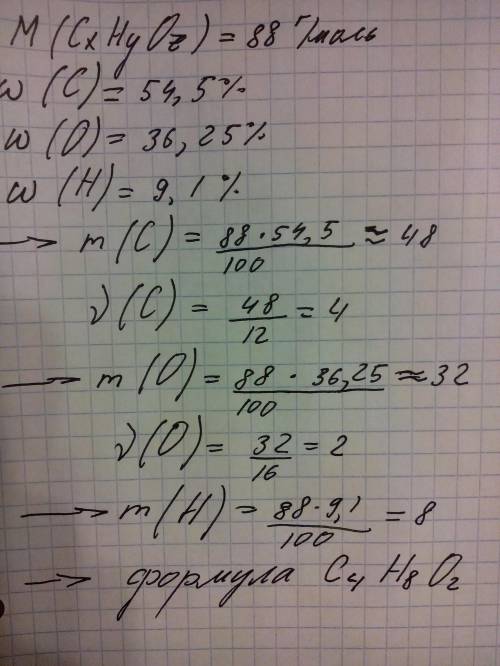 M (CxHyOz) = 88 г/моль
ω (C) = 54,5%
ω (O) = 36,25%
ω (H) = 9,1%
→ m (C) = 88·54,5/100 ≈ 48
ν (C) = 48/12 = 4
→ m (O) = 88·36,25/100 ≈ 32
ν (O) = 32/16 = 2
→ m (H) = 88·9,1/100 = 8
→ формула C₄H₈O₂